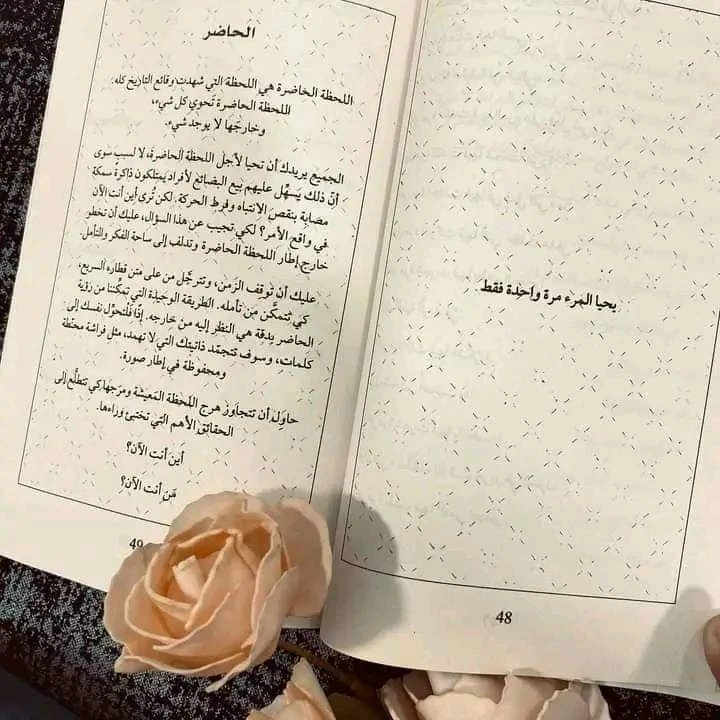 يحيا المرء مرة واحدة فقط
48
الحاضر
اللحظة الحاضرة هي اللحظة التي شهدت وقائع التاريخ كله.
اللحظة الحاضرة تحوي كل شيء،
وخارجها لا يوجد شيء.
الجميع يريدك أن تحيا لأجل اللحظة الحاضرة، لا لسبب سوى
أنّ ذلك يَسهُل عليهم بيع البضائع لأفراد يمتلكون ذاكرة سمكة
مصابة بنقص الانتباه وفرط الحركة. لكن تُرى أين أنت الآن
في واقع الأمر؟ لكي تجيب عن هذا السؤال، عليك أن تخطو
خارج إطار اللحظة الحاضرة وتدلف إلى ساحة الفكر والتأمل.
عليك أن توقف الزمن، وتترجّل من على متن قطاره السريع،
كي تتمكَّن من تأمله. الطريقة الوحيدة التي تمكِّننا من رؤية
الحاضر بدقة هي النظر إليه من خارجه. إذًا فلتحوِّل نفسك إلى
كلمات، وسوف تتجمّد ذاتيتك التي لا تهمد، مثل فراشة محنَّطة
ومحفوظة في إطار صورة.
حاول أن تتجاوز هرج اللحظة المَعيشة ومرجها كي تتطلَّع إلى
الحقائق الأهم التي تختبئ وراءها.
أين أنت الآن؟
مَن أنت الآن؟
49